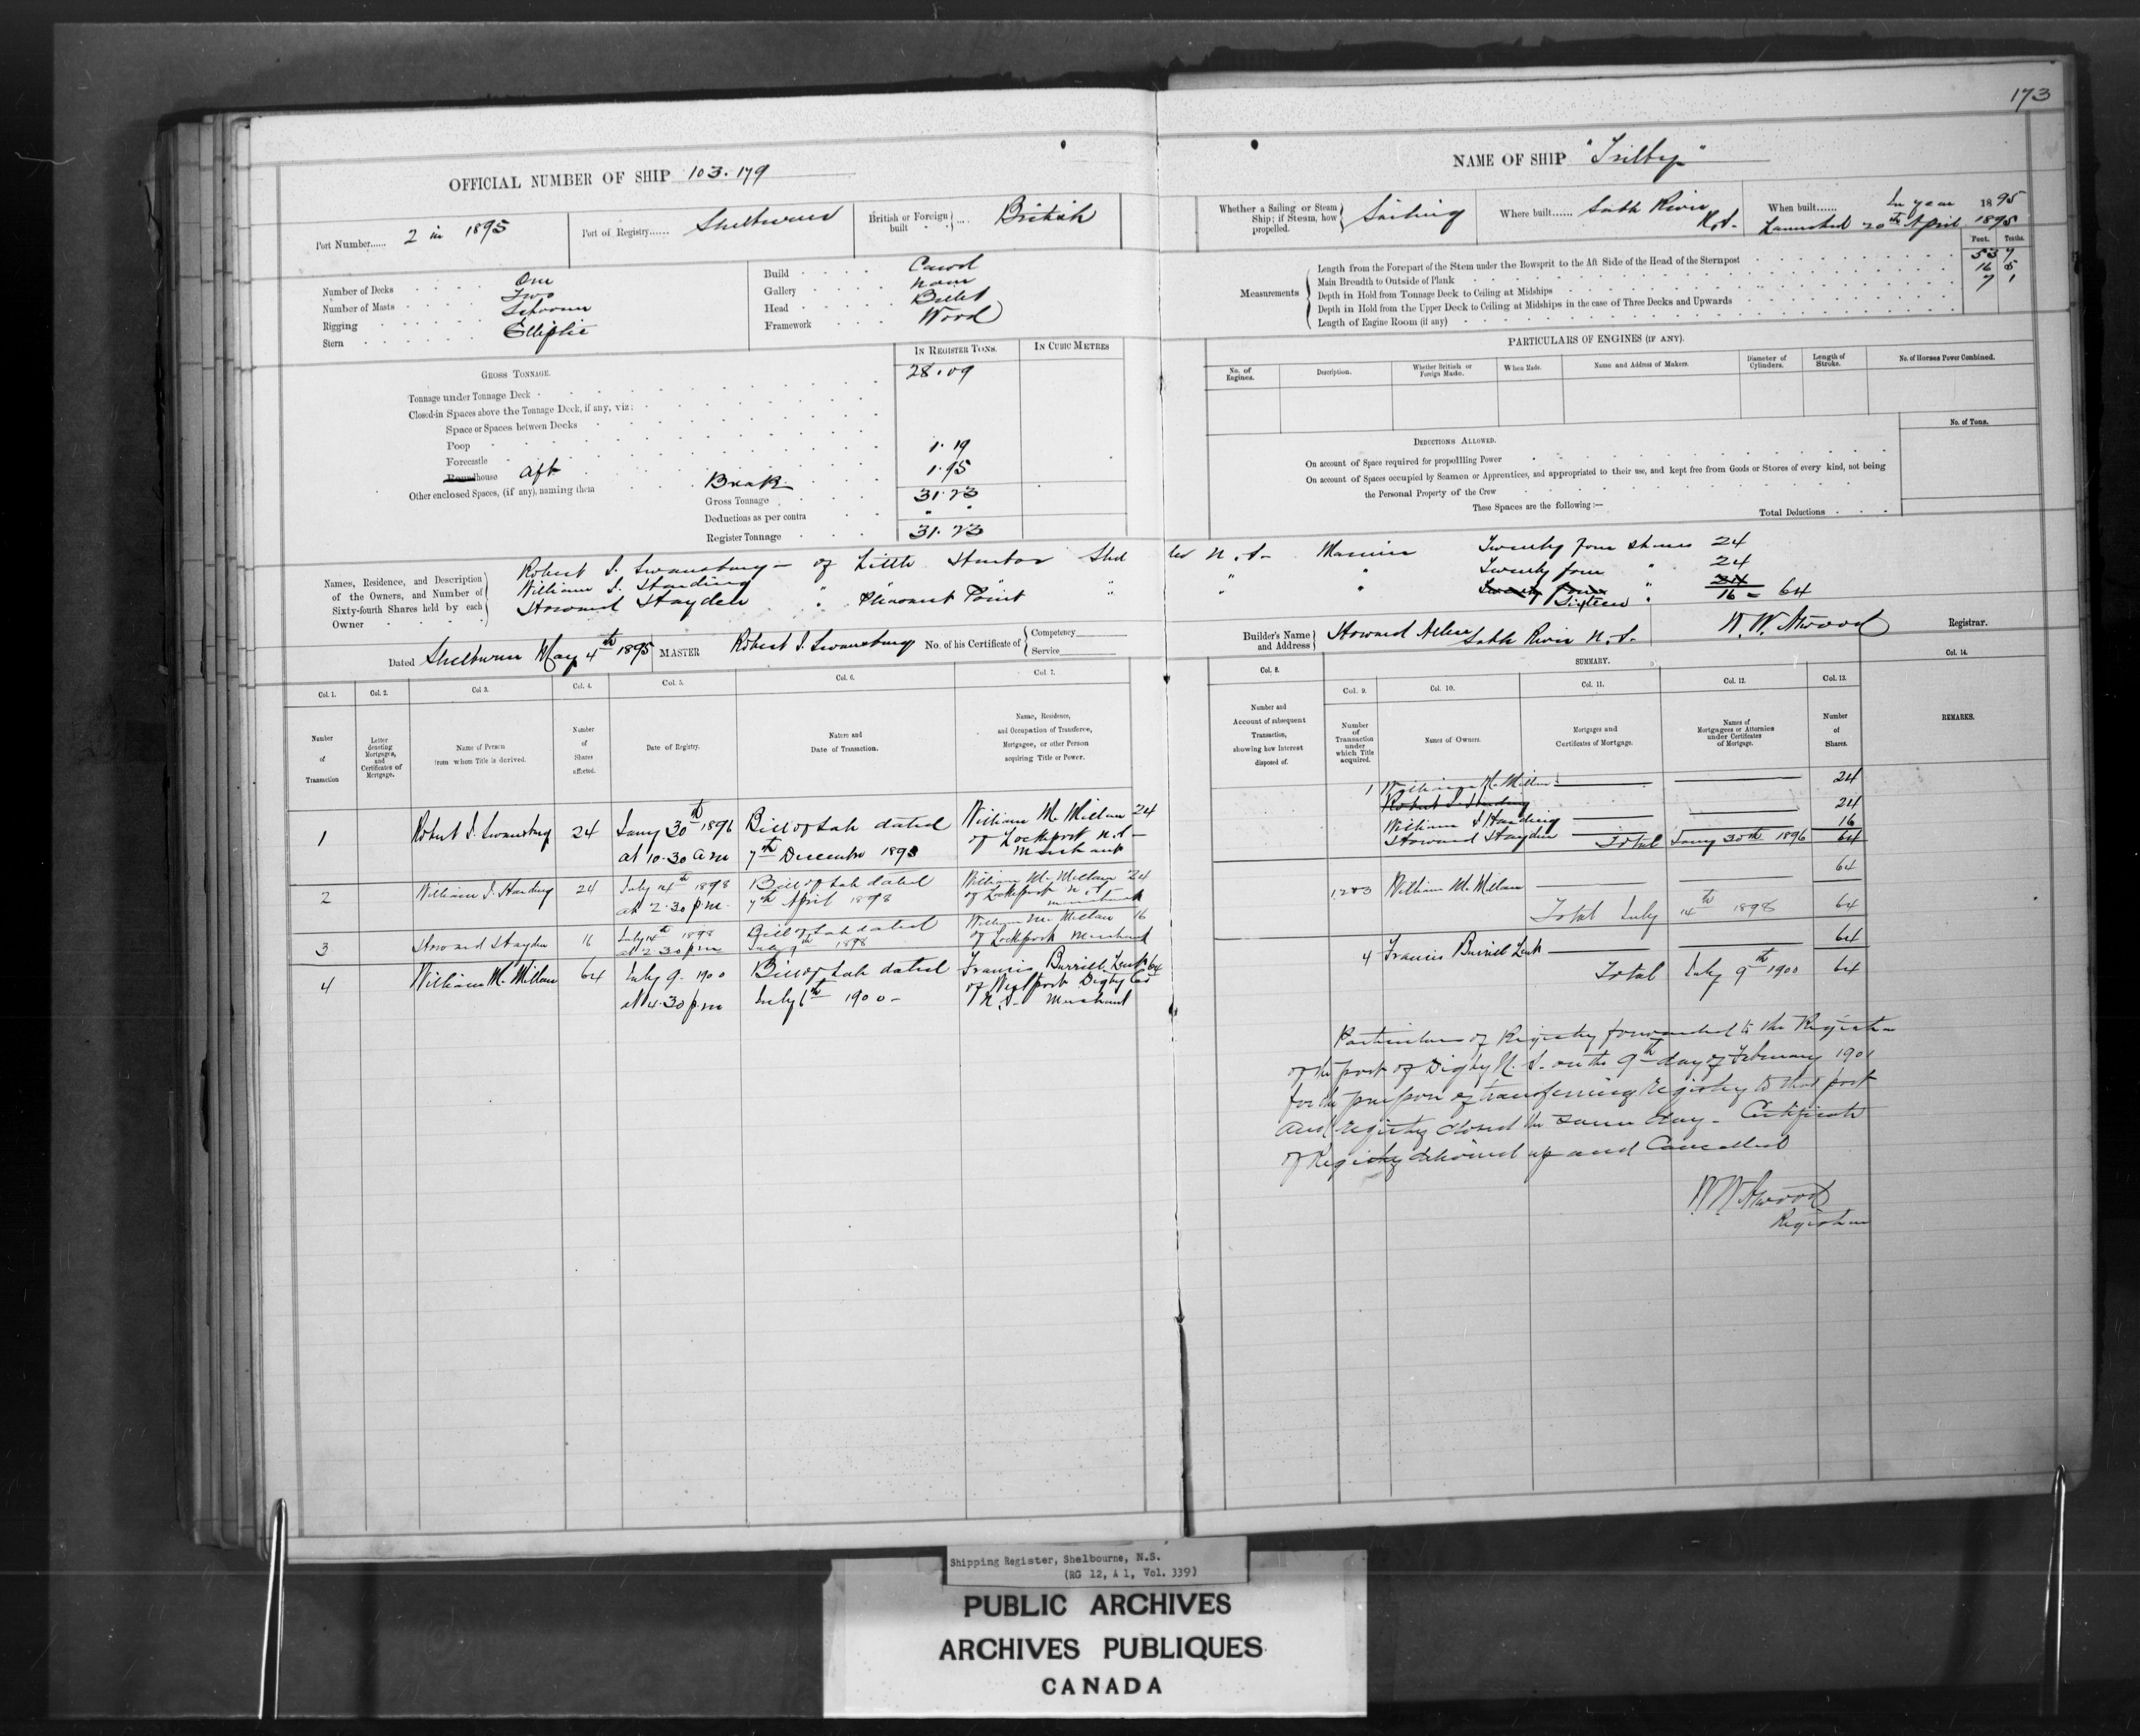 173
OFFICIAL NUMBER OF SHIP 103.179
NAME OF SHIP "Trilby"
Port Number...... 2 in 1895
Port of Registry...... Shelburne
British or Foreign built ... British
Whether a Sailing or Steam Ship; if Steam, how propelled. Sailing
Where built...... Sable River N.S.
When built...... In year 1895
Launched 20th April 1895
Number of Decks One
Number of Masts Two
Rigging Schooner
Stern Elliptic
Build Carvel
Gallery none
Head Billet
Framework Wood
Measurements
Feet. Tenths.
Length from the Forepart of the Stem under the Bowsprit to the Aft Side of the Head of the Sternpost 53 7
Main Breadth to Outside of Plank 16 5
Depth in Hold from Tonnage Deck to Ceiling at Midships 7 1
Depth in Hold from the Upper Deck to Ceiling at Midships in the case of Three Decks and Upwards
Length of Engine Room (if any)
GROSS TONNAGE.
IN REGISTER TONS.
IN CUBIC METRES
Tonnage under Tonnage Deck 28.09
Closed-in Spaces above the Tonnage Deck, if any, viz:
Space or Spaces between Decks
Poop
Forecastle 1.19
Roundhouse Aft
Other enclosed Spaces, (if any), naming them Break 1.95
Gross Tonnage 31.23
Deductions as per contra " "
Register Tonnage 31.23
PARTICULARS OF ENGINES (IF ANY).
No. of Engines.
Description.
Whether British or Foreign Made.
When Made.
Name and Address of Makers.
Diameter of Cylinders.
Length of Stroke.
No. of Horses Power Combined.
DEDUCTIONS ALLOWED.
No. of Tons.
On account of Space required for propelling Power
On account of Spaces occupied by Seamen or Apprentices, and appropriated to their use, and kept free from Goods or Stores of every kind, not being
the Personal Property of the Crew
These Spaces are the following:—
Total Deductions
Names, Residence, and Description of the Owners, and Number of Sixty-fourth Shares held by each Owner
Robert S. Swansburg — of Little Harbor Shel Co N.S. Mariner Twenty four shares 24
William S. Harding " " " " Twenty four " 24
Howard Hayden " Pleasant Point " " " Twenty four Sixteen " 24 16 = 64
Dated Shelburne May 4th 1895
MASTER Robert S. Swansburg
No. of his Certificate of
Competency
Service
Builder's Name and Address Howard Sable River N.S.
W. W. Atwood Registrar.
Col. 1.
Col. 2.
Col 3.
Col. 4.
Col. 5.
Col. 6.
Col. 7.
Col. 8.
SUMMARY.
Col. 9.
Col. 10.
Col. 11.
Col. 12.
Col. 13.
Col. 14.
Number of Transaction
Letter denoting Mortgages, and Certificates of Mortgage.
Name of Person from whom Title is derived.
Number of Shares affected.
Date of Registry.
Nature and Date of Transaction.
Name, Residence, and Occupation of Transferee, Mortgagee, or other Person acquiring Title or Power.
Number and Account of subsequent Transaction, showing how Interest disposed of.
Number of Transaction under which Title acquired.
Names of Owners.
Mortgages and Certificates of Mortgage.
Names of Mortgagees or Attornies under Certificates of Mortgage.
Number of Shares.
REMARKS.
1 Robert S. Swansburg 24 Jany 30th 1896 Bill of Sale dated William McMillan 24
at 10.30 a.m 7th December 1895 of Lockeport N.S. Merchant
1 William McMillan 24
Robert S. Harding
William S Harding 24
Howard Hayden 16
Total Jany 30th 1896 64
2 William S. Harding 24 July 14th 1898 Bill of Sale dated William McMillan 24
at 2.30 p.m. 7th April 1898 of Lockeport N.S. merchant
3 Howard Hayden 16 July 14th 1898 Bill of Sale dated William McMillan 16
at 2.30 p.m July 9th 1898 of Lockeport Merchant
1,2&3 William McMillan 64
Total July 14th 1898 64
4 William McMillan 64 July 9. 1900 Bill of Sale dated Francis Burrill Lent 64
at 4.30 p.m July 6th 1900 - of Westport Digby Co N.S. Merchant
4 Francis Burrill Lent 64
Total July 9th 1900 64
Particulars of Registry forwarded to the Registrar
of the port of Digby N.S. on the 9th day of February 1901
for the purpose of transferring registry to that port
and registry closed the same day. Certificate
of Registry delivered up and Cancelled
W W Atwood
Registrar
Shipping Register, Shelbourne, N.S.
(RG 12, A 1, Vol. 339)
PUBLIC ARCHIVES
ARCHIVES PUBLIQUES
CANADA